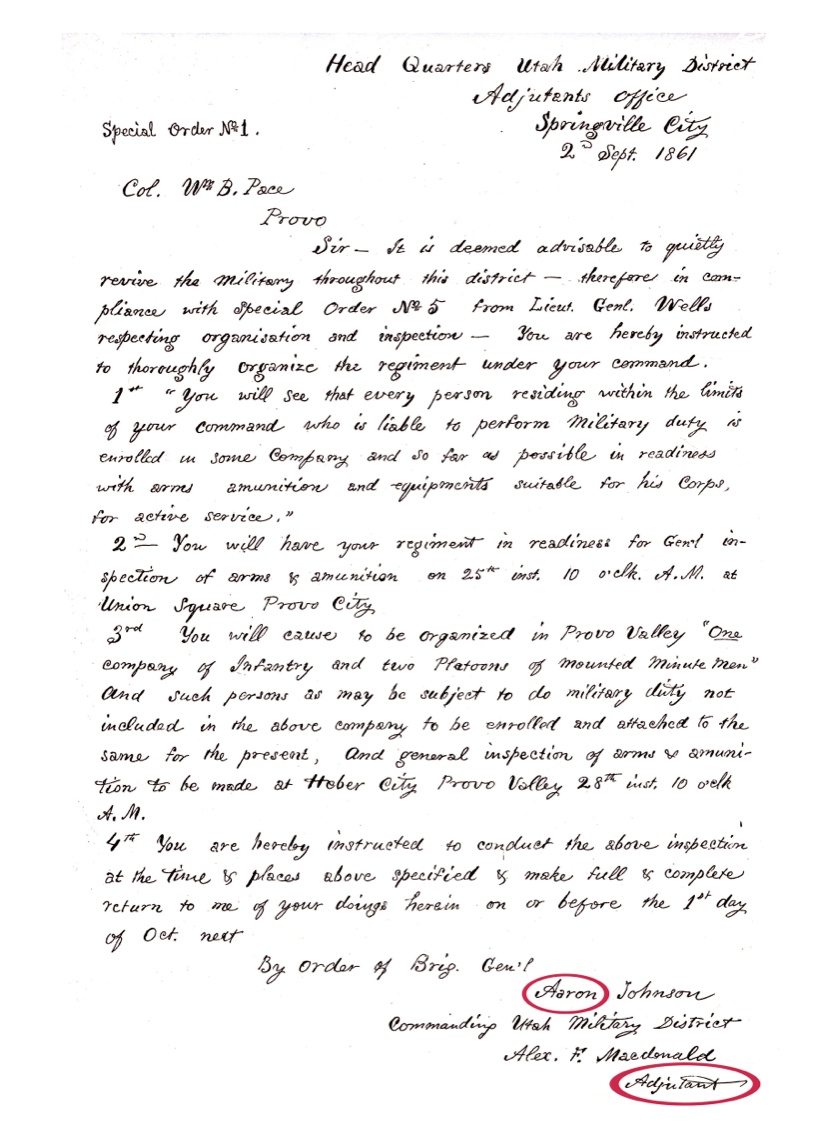 Head Quarters Utah Military District
Adjutants office
Special Order No 1.
Springville City
2d Sept. 1861
Col. Wm B. Pace
Provo
Sir — It is deemed advisable to quietly
revive the military throughout this district — therefore in com-
pliance with Special Order No 5 from Lieut. Genl. Wells
respecting organisation and inspection — You are hereby instructed
to thoroughly organize the regiment under your command.
1st "You will see that every person residing within the limits
of your command who is liable to perform Military duty is
enrolled in some Company and so far as possible in readiness
with arms amunition and equipments suitable for his Corps,
for active service."
2d — You will have your regiment in readiness for Gen'l in-
spection of arms & amunition on 25th inst. 10 o'clk. A.M. at
Union Square Provo City
3rd You will cause to be organized in Provo Valley "One
company of Infantry and two Platoons of mounted Minute Men"
And such persons as may be subject to do military duty not
included in the above company to be enrolled and attached to the
same for the present, And general inspection of arms & amuni-
tion to be made at Heber City Provo Valley 28th inst. 10 o'clk
A.M.
4th You are hereby instructed to conduct the above inspection
at the time & places above specified & make full & complete
return to me of your doings herein on or before the 1st day
of Oct. next
By Order of Brig. Gen'l
Aaron Johnson
Commanding Utah Military District
Alex. F. Macdonald
Adjutant